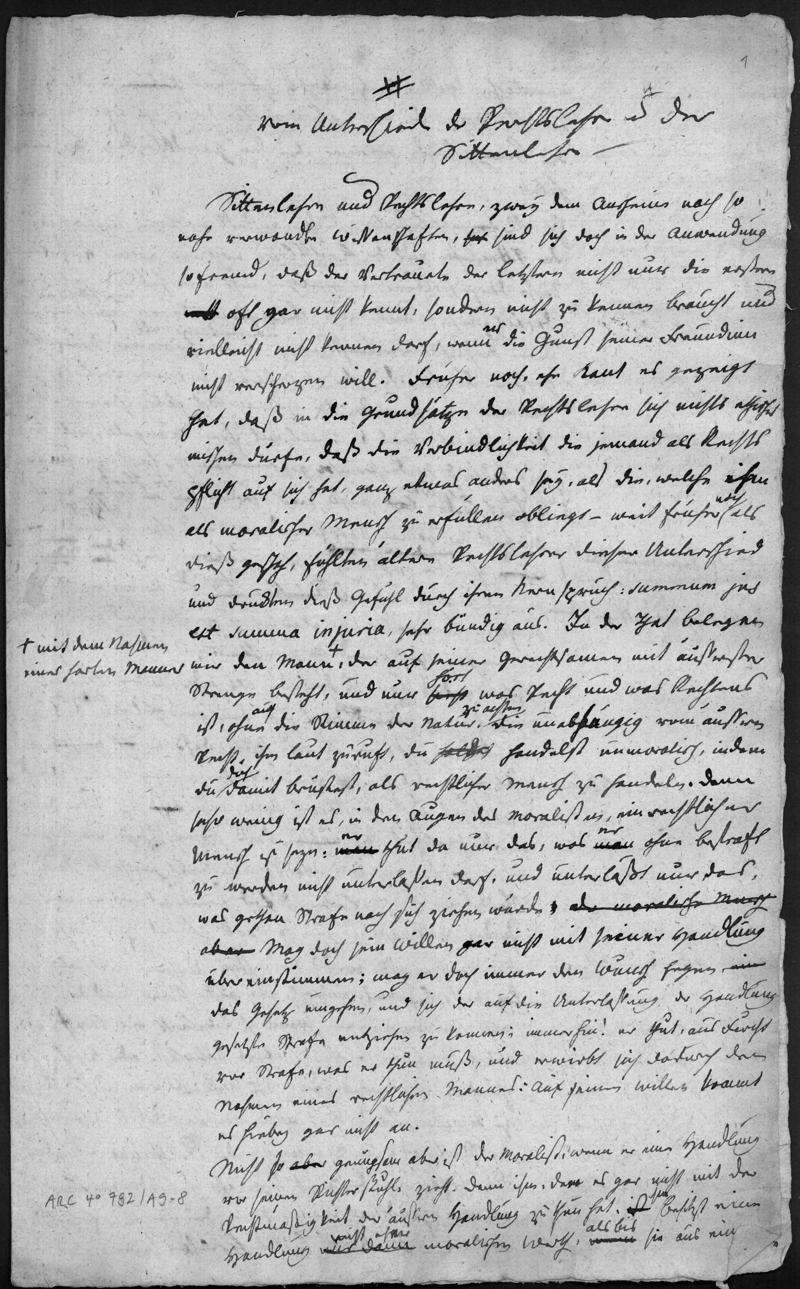 1
vom Unterschied der Rechtslehre u der
Sittenlehre —
Sittenlehre und Rechtslehre, zwey dem Anschein nach so
nahe verwandte Wissenschaften, sind sich doch in der Anwendung
so fremd, daß der Vertraute der letztern nicht nur die erstere
oft gar nicht kennt, sondern nicht zu kennen braucht und
vielleicht nicht kennen darf, wenn er die Gunst seiner Freundinn
nicht verscherzen will. Früher noch, ehe Kant es gezeigt
hat, daß in die Grundsätze der Rechtslehre sich nichts ethisches
mischen dürfe, daß die Verbindlichkeit die jemand als Rechts
pflicht auf sich hat, ganz etwas anders sey, als die, welche ihm
als moralischer Mensch zu erfüllen obliegt — weit früher noch als
dieß geschah, fühlten ältere Rechtslehrer diesen Unterschied
und drückten dieß Gefühl durch ihren Kernspruch: summum jus
est summa injuria, sehr bündig aus. In der That belegen
+ mit dem Nahmen
eines harten Mannes
wir den Mann +, der auf seiner Gerechtsamen mit äusserster
Strenge besteht, und nur hört was Recht und was Rechtens
ist, ohne auf die Stimme der Natur zu achten, die unabhängig vom äussern
Recht, ihm laut zuruft, du handelst unmoralisch, indem
du dich damit brüstest, als rechtlicher Mensch zu handeln. Denn
sehr wenig ist es, in den Augen des Moralisten, ein rechtlicher
Mensch zu seyn: er thut da nur das, was er ohne bestraft
zu werden nicht unterlassen darf, und unterläßt nur das,
was gethan Strafe nach sich ziehen würde; der moralische Mensch
aber Mag doch sein Willen gar nicht mit seiner Handlung
übereinstimmen; mag er doch immer den Wunsch hegen
das Gesetz umgehen, und sich der auf die Unterlassung der Handlung
gesetzte Strafe entziehen zu können: immerhin! er thut, aus Furcht
vor Strafe, was er thun muß, und erwirbt sich dadurch den
Nahmen eines rechtlichen Mannes: auf seinen Willen kommt
es hiebey gar nicht an.
Nicht so genügsam aber ist der Moralist, wenn er eine Handlung
vor seinen Richterstuhl zieht. Denn ihm, dem es gar nicht mit der
Rechtmäßigkeit der äussern Handlung zu thun hat, besitzt eine
Handlung nicht eher moralischen Werth, als bis sie aus ein
ARC 4° 792/A9-8